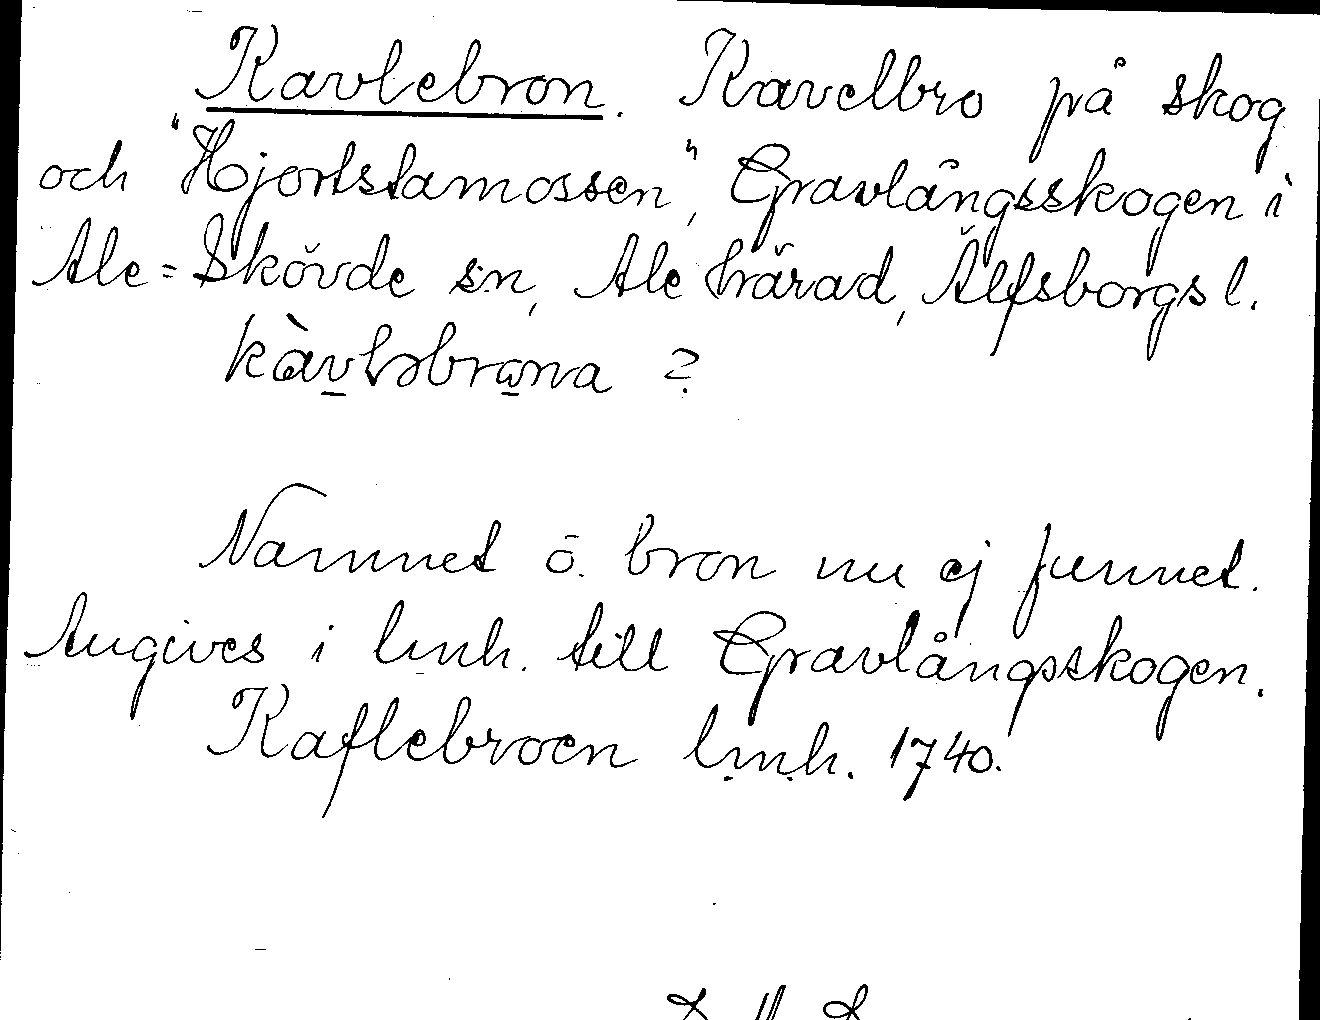 Kavlebron. Kavelbro på skog
och "Hjortstamossen", Gravlångsskogen i
Ale=Skövde sn, Ale härad, Älfsborgs l.
kàvləbrona ?
Namnet o. bron nu ej funnet.
Angives i lmh. till Gravlångsskogen.
Kaflebroen lmh. 1740.